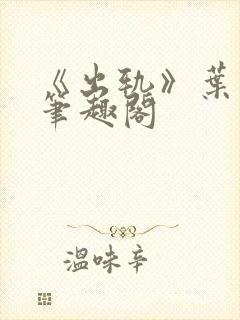 《出轨》葉
筆趣閣
溫味辛